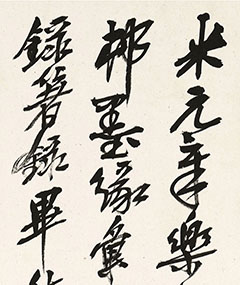 米元章樂
邨墨緣彙
錄箸錄畢